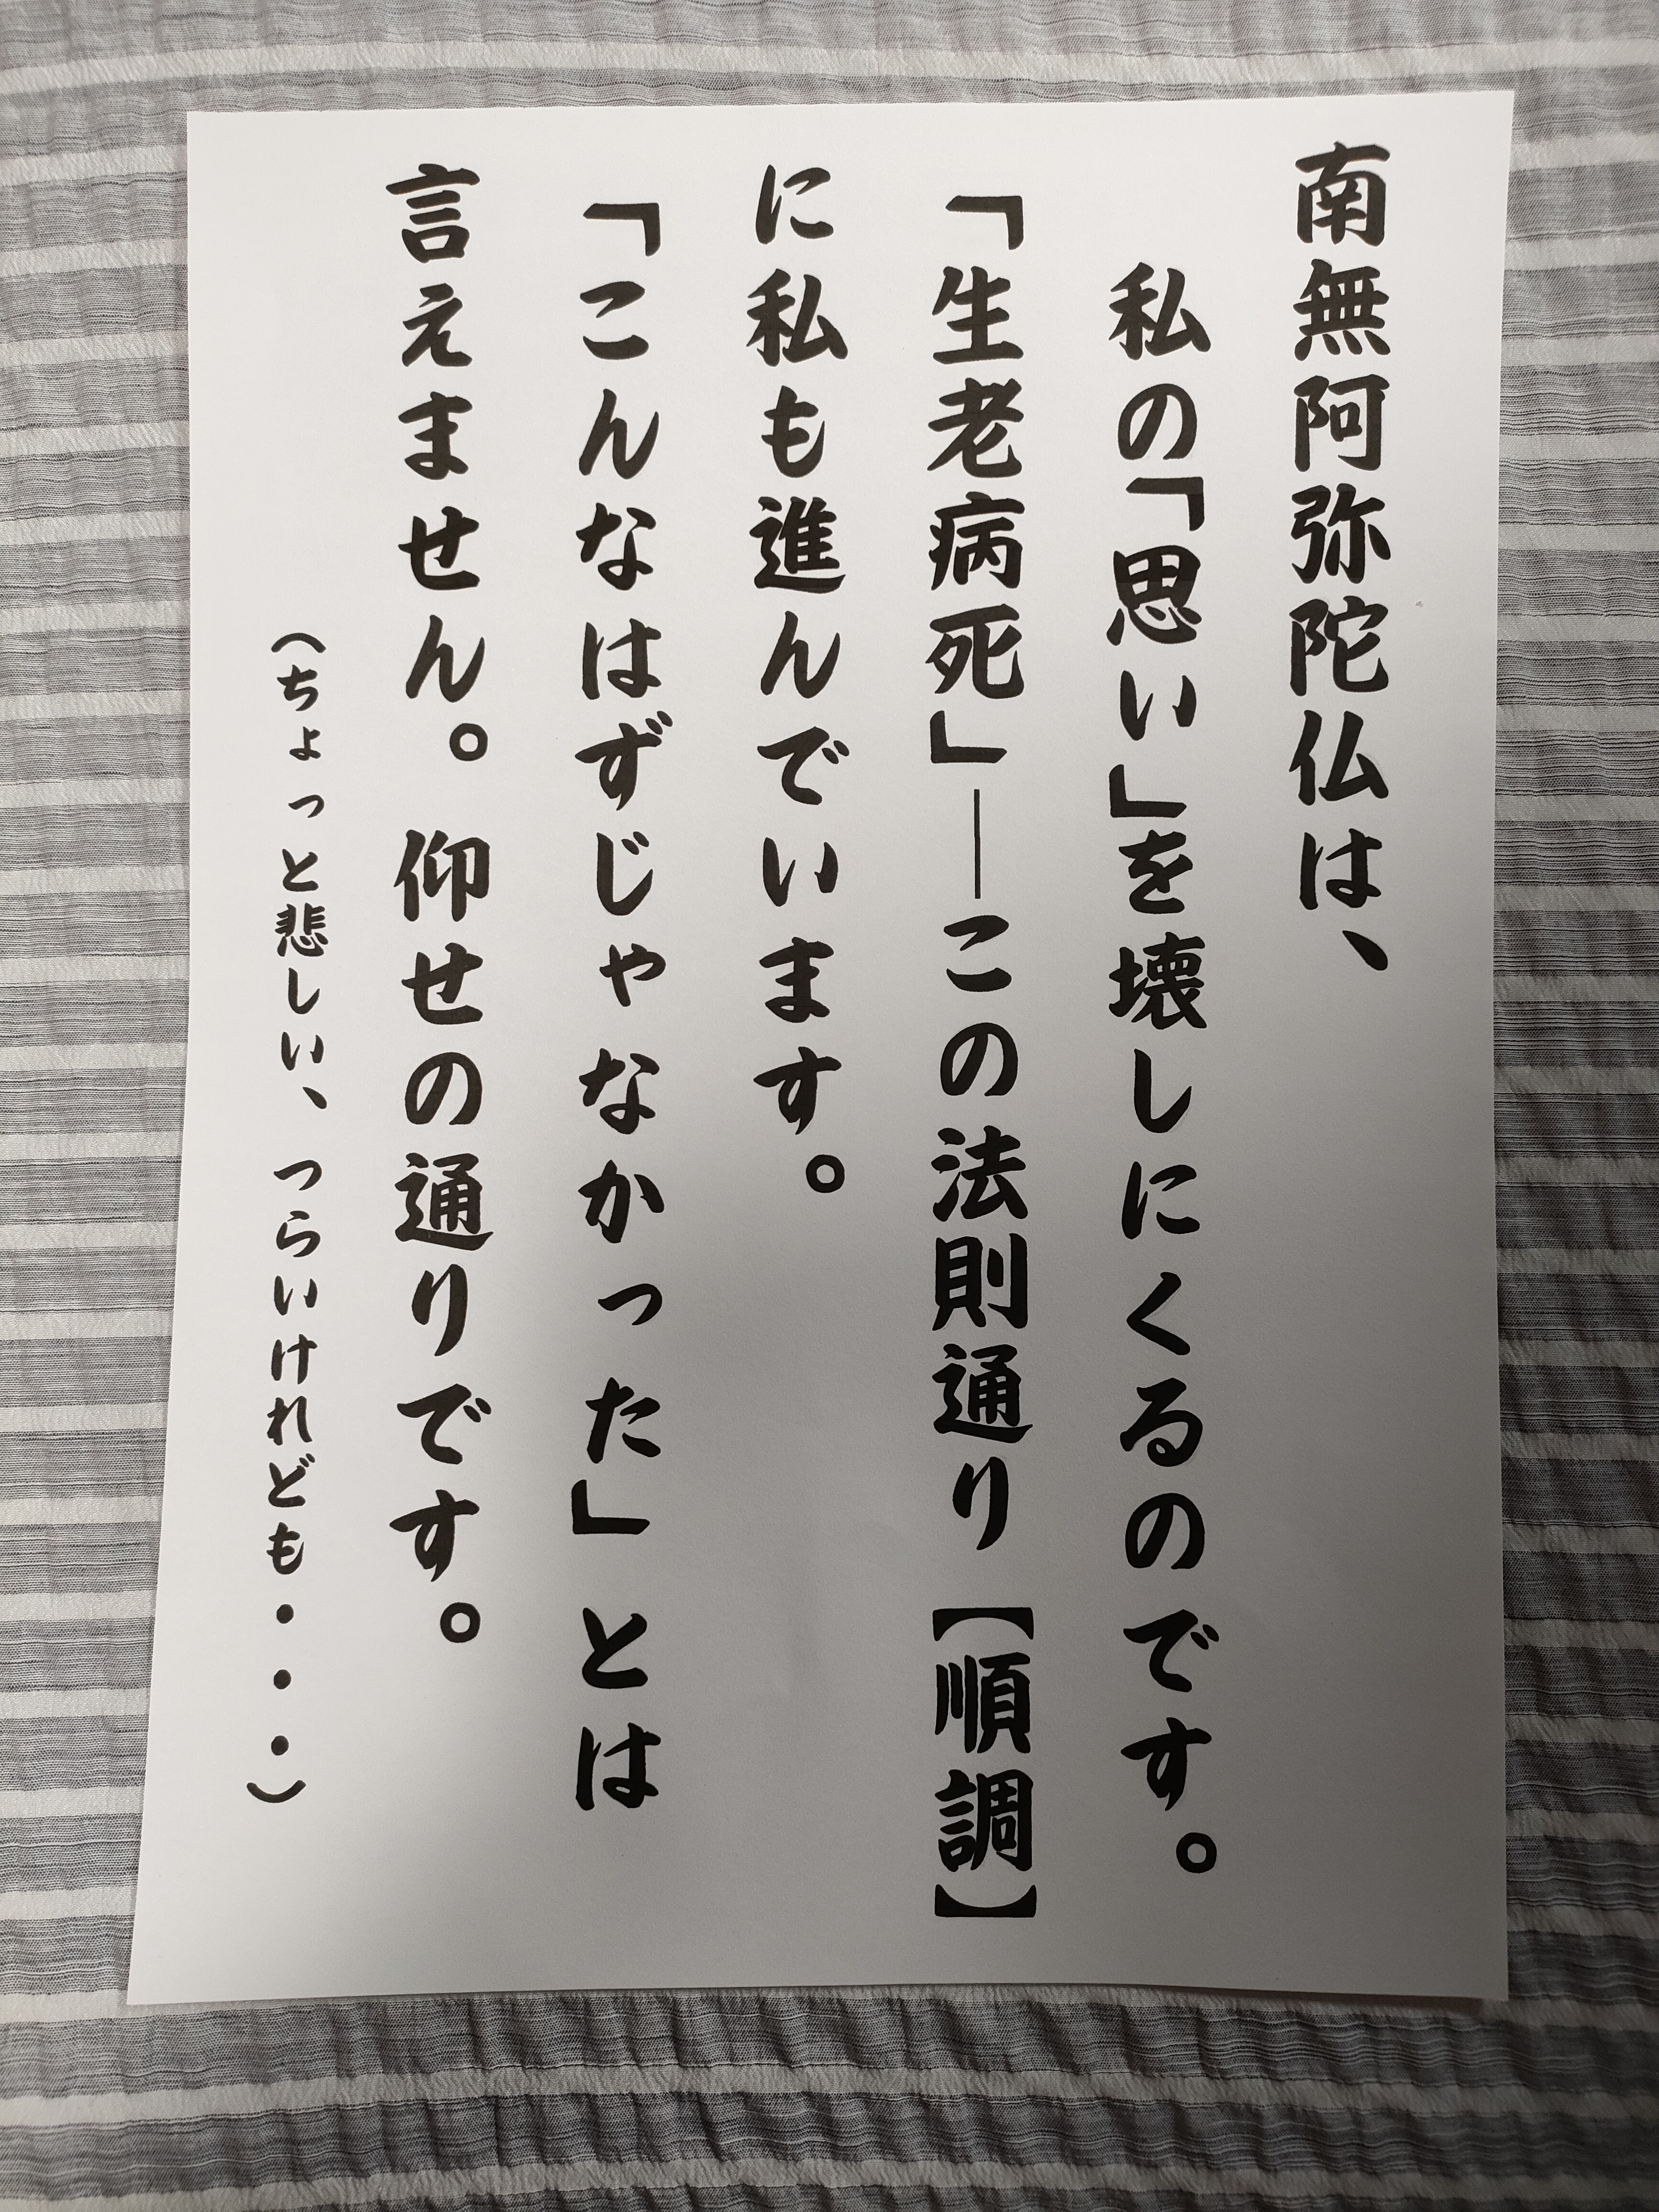 南無阿弥陀仏は、
私の「思い」を壊しにくるのです。
「生老病死」―この法則通り【順調】
に私も進んでいます。
「こんなはずじゃなかった」とは
言えません。仰せの通りです。
（ちょっと悲しい、つらいけれども・・・）